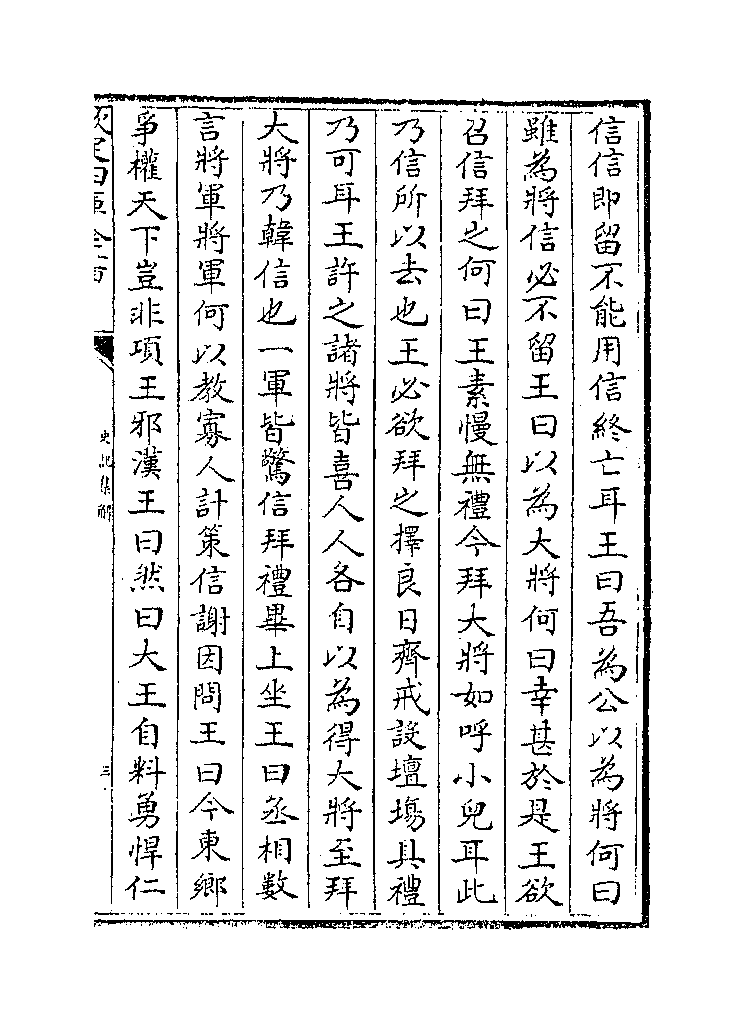 信信即留不能用信終亡耳王曰吾為公以為將何曰
雖為將信必不留王曰以為大將何曰幸甚於是王欲
召信拜之何曰王素慢無禮今拜大將如呼小兒耳此
乃信所以去也王必欲拜之擇良日齊戒設壇場具禮
乃可耳王許之諸將皆喜人人各自以為得大將至拜
大將乃韓信也一軍皆驚信拜禮畢上坐王曰丞相數
言將軍將軍何以教寡人計策信謝因問王曰今東鄉
爭權天下豈非項王邪漢王曰然曰大王自料勇悍仁
欽定四庫全書
史記集解
三